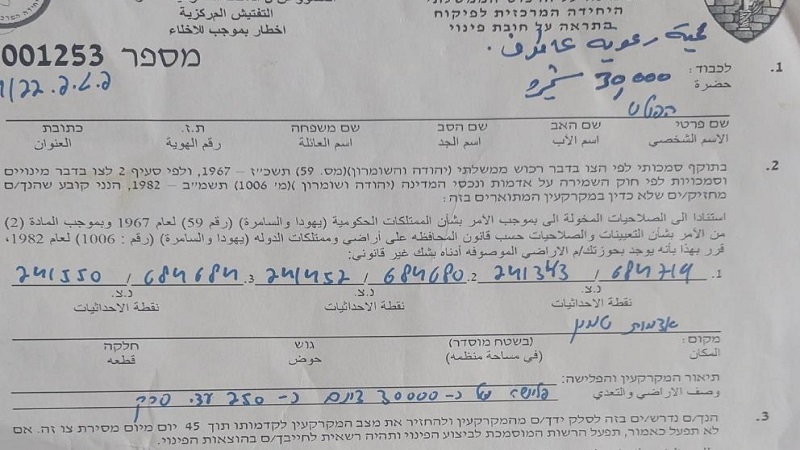 היחידה המרכזית לפיקוח
התראה על חובת פינוי
التفتيش المركزية
اخطار بموجب الاخلاء
מספר 001253
1. לכבוד:
حضرة
30,000
שם פרטי שם האב שם הסב שם משפחה ת.ז. כתובת
الاسم الشخصي اسم الأب اسم الجد اسم العائلة رقم الهوية العنوان
2. בתוקף סמכותי לפי הצו בדבר רכוש ממשלתי (יהודה והשומרון)(מס. 59) תשכ״ז – 1967, ולפי סעיף 2 לצו בדבר מינויים
וסמכויות לפי חוק השמירה על אדמות ונכסי המדינה (יהודה ושומרון )(מ׳ 1006) תשמ״ב – 1982, הנני קובע שהנך/ם
מחזיק/ים שלא כדין במקרקעין המתוארים בזה:
استنادا الى الصلاحيات المخولة الى بموجب الأمر بشأن الممتلكات الحكومية (يهودا والسامرة) (رقم 59) لعام 1967 وبموجب المادة (2)
من الأمر بشأن التعيينات والصلاحيات حسب قانون المحافظه على أراضي وممتلكات الدوله (يهودا والسامرة) (رقم : 1006) لعام 1982،
قرر بهذا بأنه يوجد بحوزتك/م الاراضي الموصوفه أدناه بشك غير قانوني:
1. 684719 / 241343 2. 684680 / 241452 3. 684684 / 241550
נ.צ. נ.צ. נ.צ.
نقطة الاحداثيات نقطة الاحداثيات نقطة الاحداثيات
אדמות טמון
מקום: (בשטח מוסדר) גוש חלקה
المكان (في مساحة منظمه) حوض قطعه
תיאור המקרקעין והפלישה:
وصف الاراضي والتعدي
פלישה על כ- 30000 דונם כ- 250 עצי סרק
3. הנך/ם נדרש/ים בזה לסלק ידך/ם מהמקרקעין ולהחזיר את מצב המקרקעין לקדמותו תוך 45 יום מיום מסירת צו זה. אם
לא תפעל כאמור, תפעל הרשות המוסמכת לביצוע הפינוי ותהיה רשאית לחייבך/ם בהוצאות הפינוי.